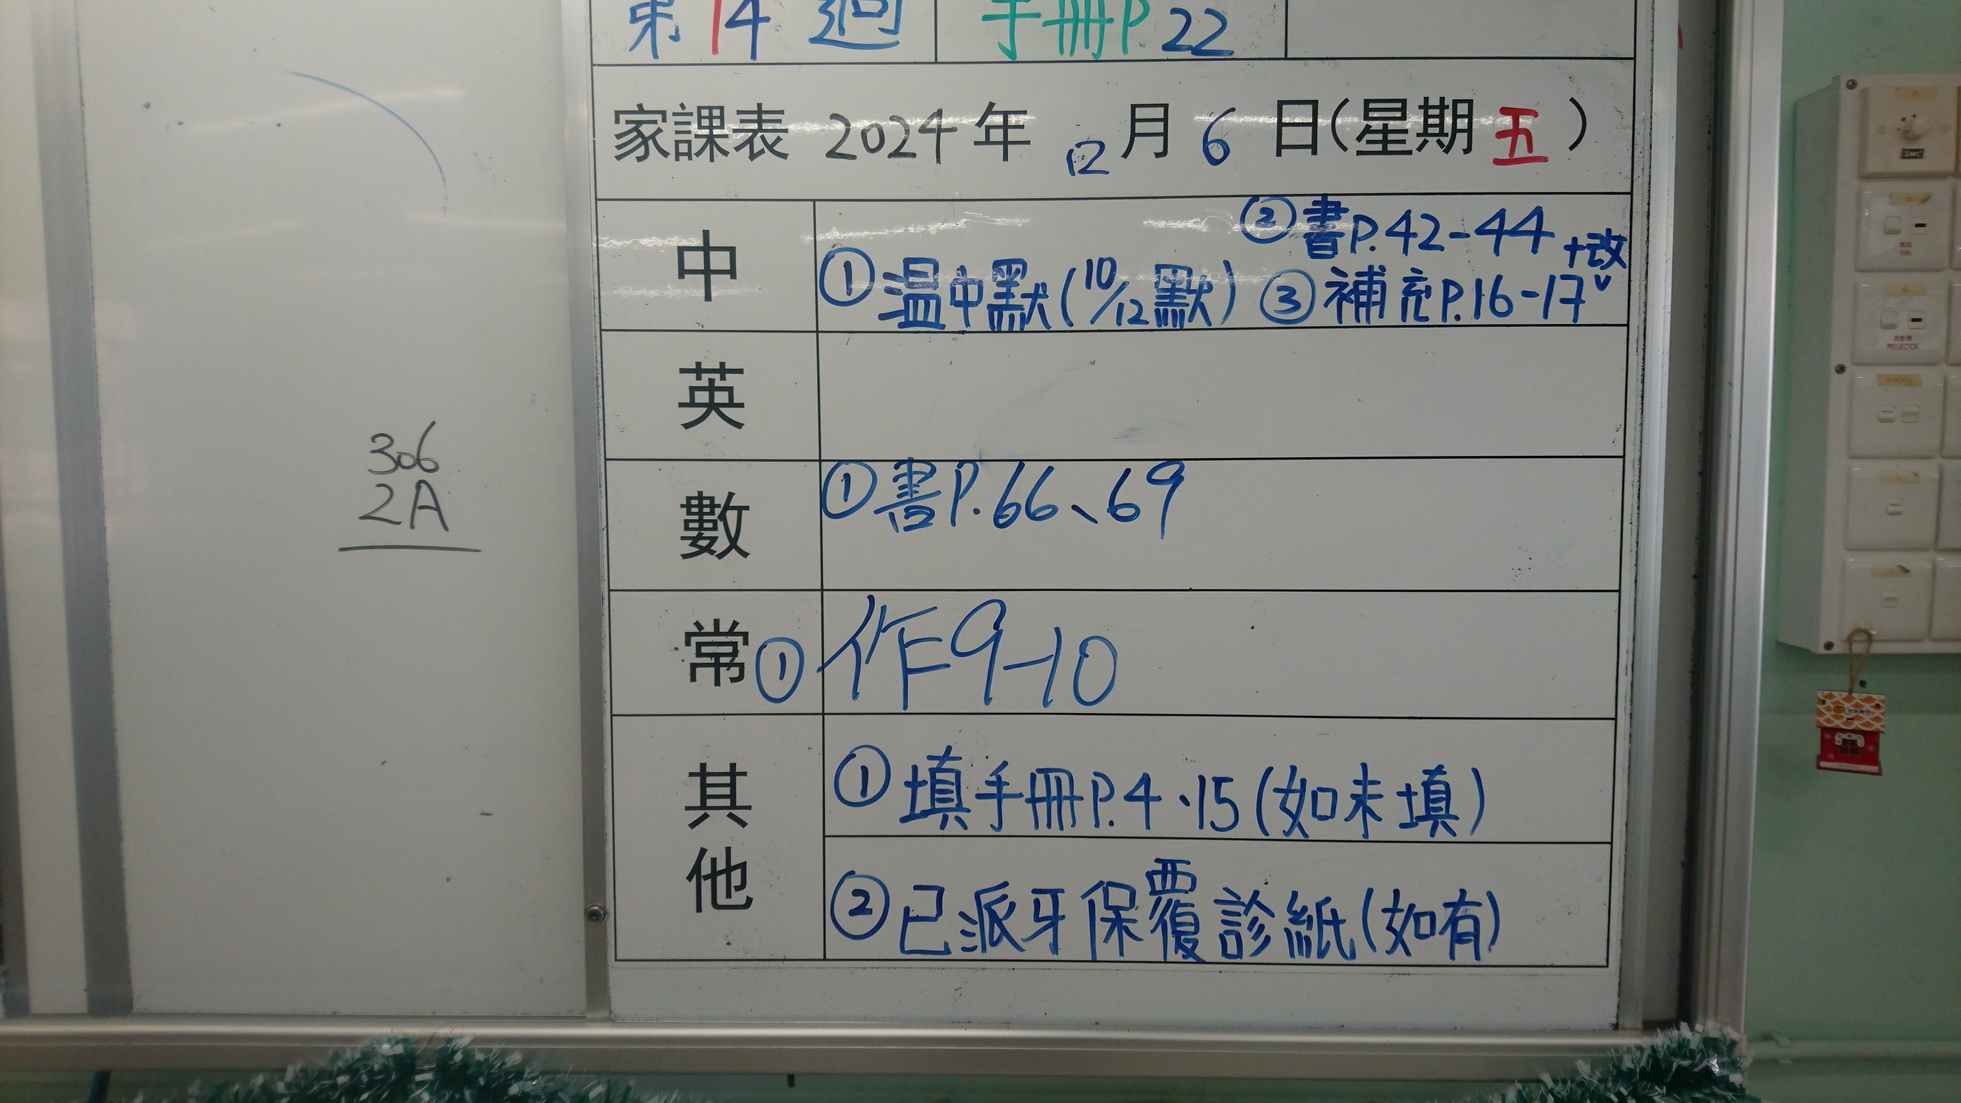 第14週 手冊P22
家課表 2024年12月6日(星期五)
中 ①温中默(10/12默) ②書P.42-44+改
③補充P.16-17
英
數 ①書P.66、69
常 ①作9-10
其他 ①填手冊P.4、15(如未填)
②已派牙保覆診紙(如有)
306
2A